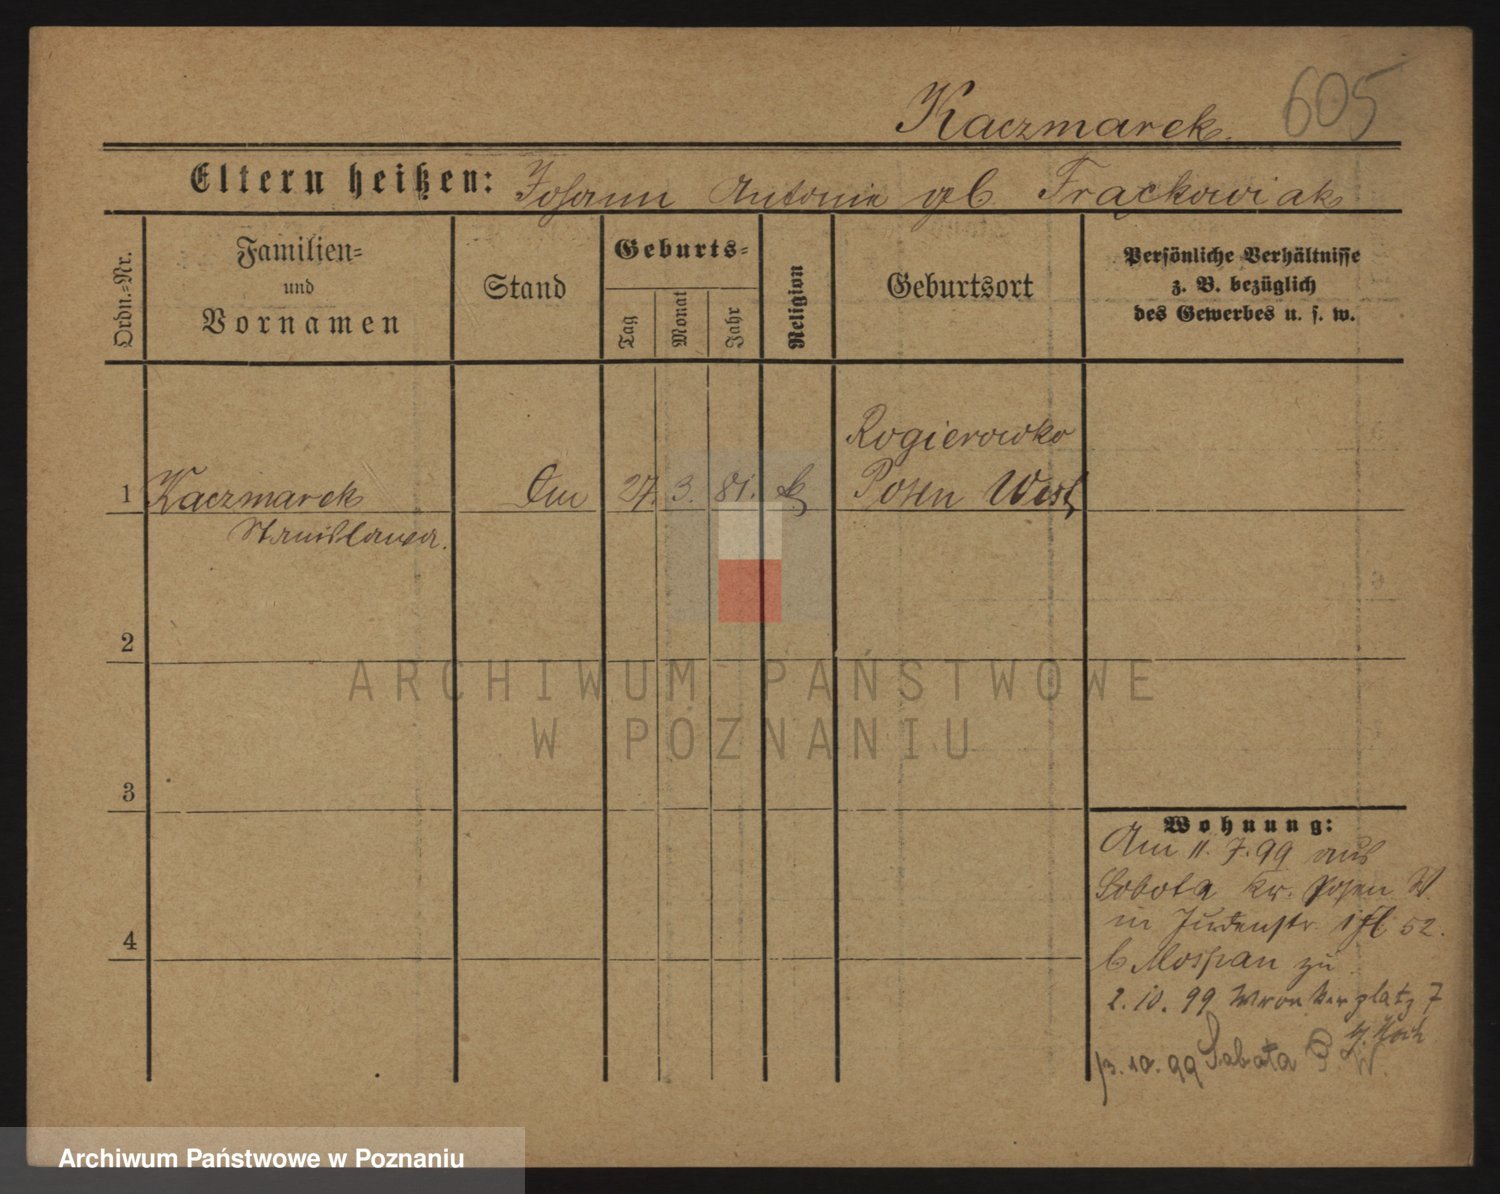 Kaczmarek. 605
Eltern heißen: Johann Antonie geb Frąckowiak
Ordn.-Nr.
Familien-
und
Vornamen
Stand
Geburts-
Tag
Monat
Jahr
Religion
Geburtsort
Persönliche Verhältnisse
z. B. bezüglich
des Gewerbes u. s. w.
Rogierowko
1 Kaczmarek 27. 3. 81. k Posen West
Stanislawa.
2
ARCHIWUM PAŃSTWOWE
W POZNANIU
3
Wohnung:
Am 11. 7. 99 aus
Sobota Kr. Posen W.
in Judenstr. 52.
b Mospan zu
2. 10. 99 Wronkerplatz 7
4
13. 10. 99 Sobota P. W.
Archiwum Państwowe w Poznaniu